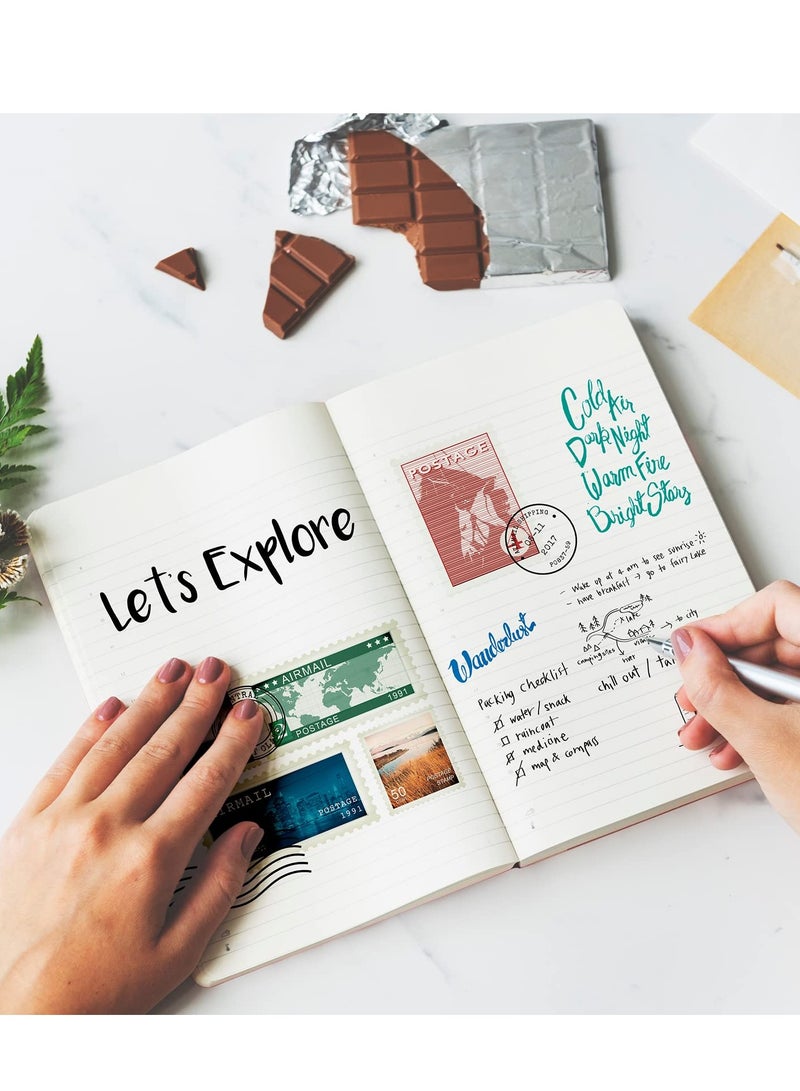 Let's Explore
AIRMAIL
POSTAGE
1991
AIRMAIL
POSTAGE
1991
50
POSTAGE
STAMP
POSTAGE
SHIPPING
2017
Cold Air
Dark Night
Warm Fire
Bright Stars
- Wake up at 4 am to see sunrise
- have breakfast → go to fairy Lake
lake
→ to city
campground
river
Wanderlust
Packing checklist
water / snack
raincoat
medicine
map & compass
chill out /